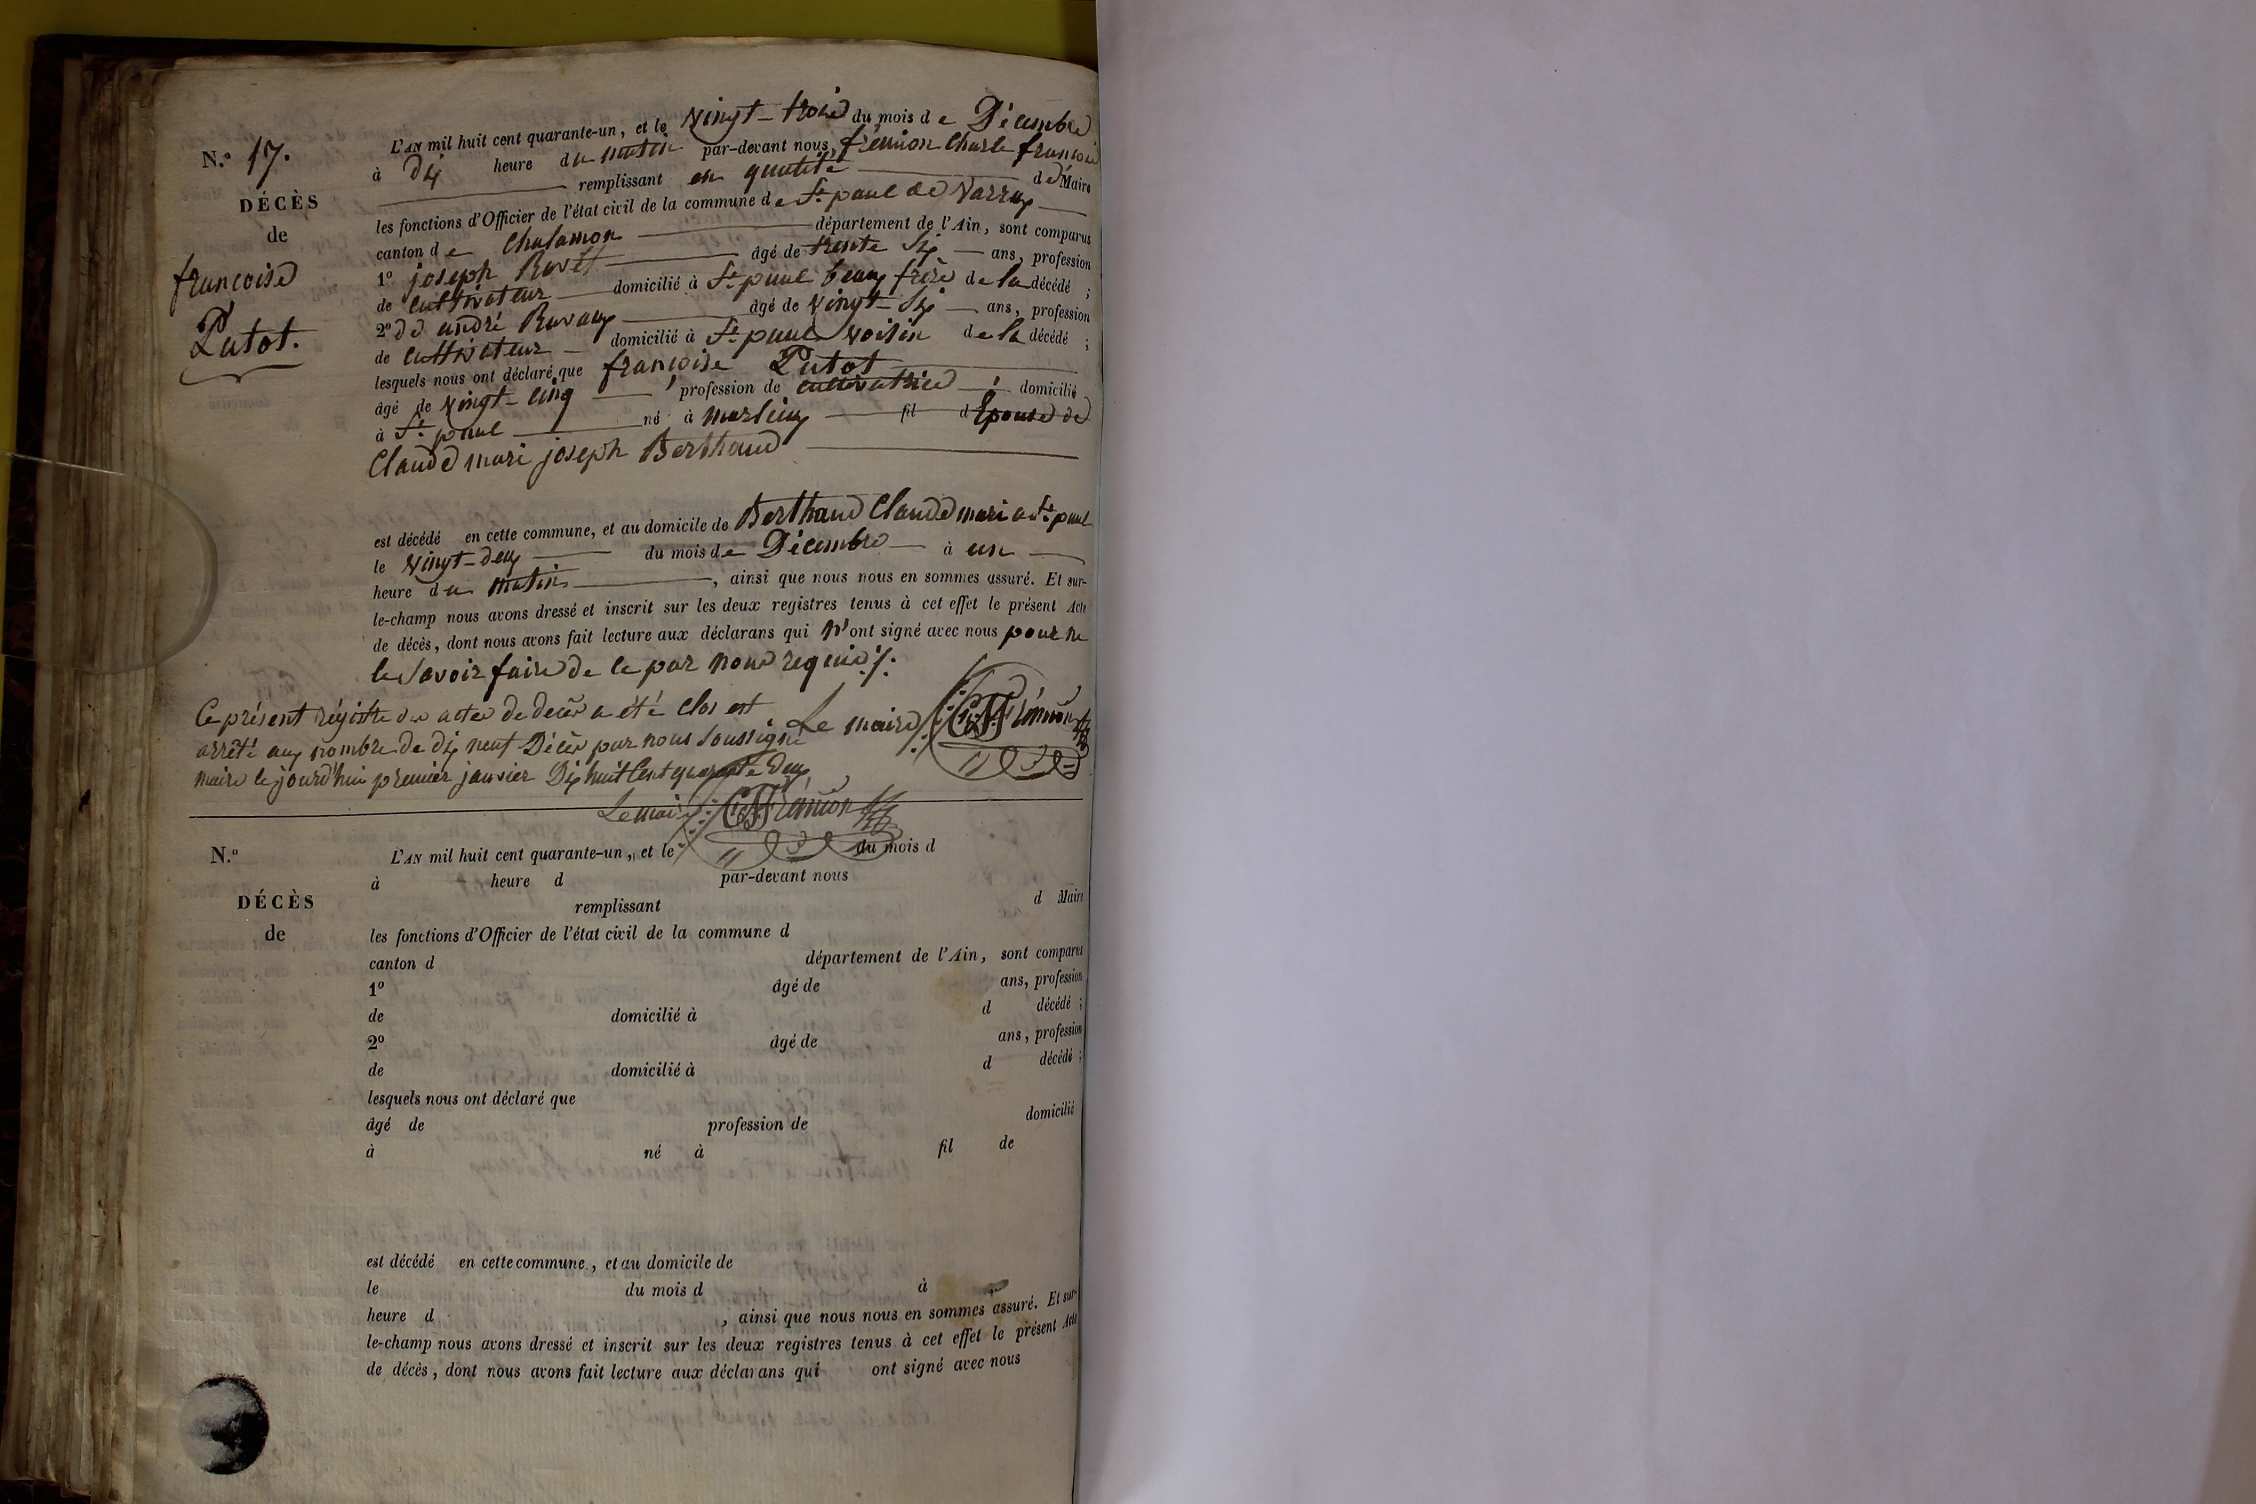 N.o 17.
DÉCÈS
de
francoise
Putot.
L'AN mil huit cent quarante-un, et le vingt-trois du mois de Décembre
à dix heure du matin par-devant nous frémion Charle francois
remplissant en qualité de Maire
les fonctions d'Officier de l'état civil de la commune de St paul de Varrax
canton de Chalamon département de l'Ain, sont comparus
1o joseph Ruvet âgé de trente Six ans, profession
de cultivateur domicilié à St paul beaux frère de la décédé ;
2o andré Ruvaux âgé de vingt-Six ans, profession
de cultivateur domicilié à St paul voisin de la décédé ;
lesquels nous ont déclaré que françoise Putot
âgé de vingt-cinq profession de cultivatrice domicilié
à St paul né à marlieux fil d Epouse de
Claude mari joseph Berthaud
est décédé en cette commune, et au domicile de Berthaud Claude mari a St paul
le vingt-deux du mois de Décembre à un
heure du matin, ainsi que nous nous en sommes assuré. Et sur-
le-champ nous avons dressé et inscrit sur les deux registres tenus à cet effet le présent Acte
de décès, dont nous avons fait lecture aux déclarans qui n'ont signé avec nous pour ne
le Savoir faire de ce par nous requis ./.
Ce présent régistre des actes de decès a été clos est
arrêté aux nombre de dix neuf Décès par nous Soussigné
maire le jourd'hui premier janvier Dix huit Cent quarante deux
Le maire Frémion
Le maire Frémion
N.o
DÉCÈS
de
L'AN mil huit cent quarante-un, et le du mois d
à heure d par-devant nous
remplissant d Maire
les fonctions d'Officier de l'état civil de la commune d
canton d département de l'Ain, sont comparus
1o âgé de ans, profession
de domicilié à d décédé ;
2o âgé de ans, profession
de domicilié à d décédé ;
lesquels nous ont déclaré que
âgé de profession de domicilié
à né à fil de
est décédé en cette commune, et au domicile de
le du mois d à
heure d , ainsi que nous nous en sommes assuré. Et sur-
le-champ nous avons dressé et inscrit sur les deux registres tenus à cet effet le présent Acte
de décès, dont nous avons fait lecture aux déclarans qui ont signé avec nous